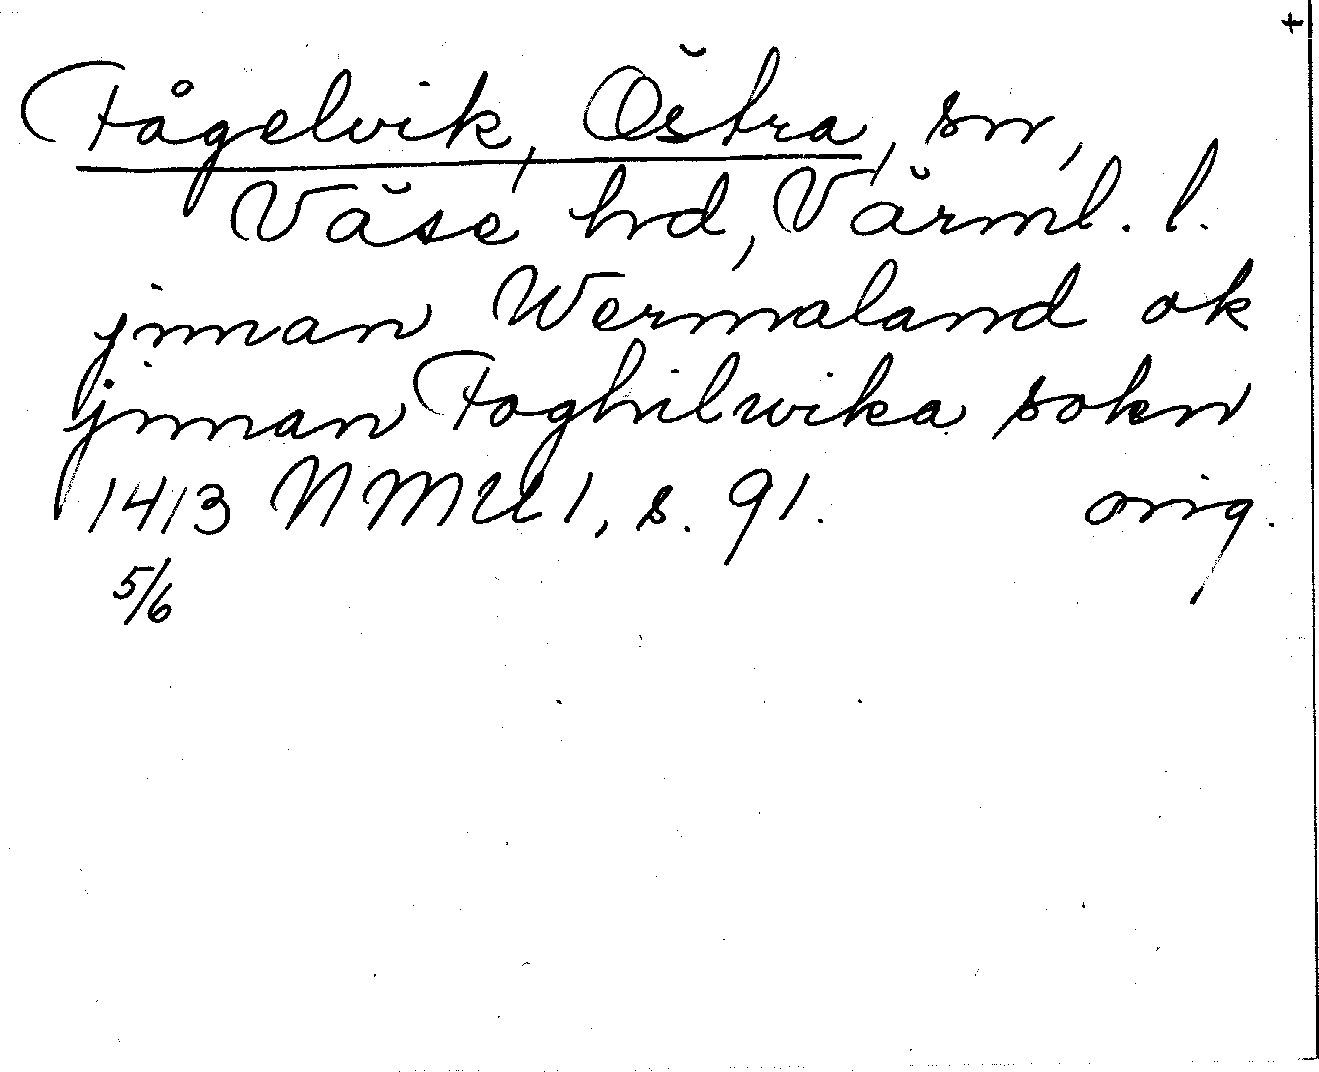 +
Fågelvik, Östra, sn,
Väse hd, Värml. l.
jnnan Wermaland ok
jnnan Foghilwika sokn
1413 NMU 1, s. 91. orig.
5/6